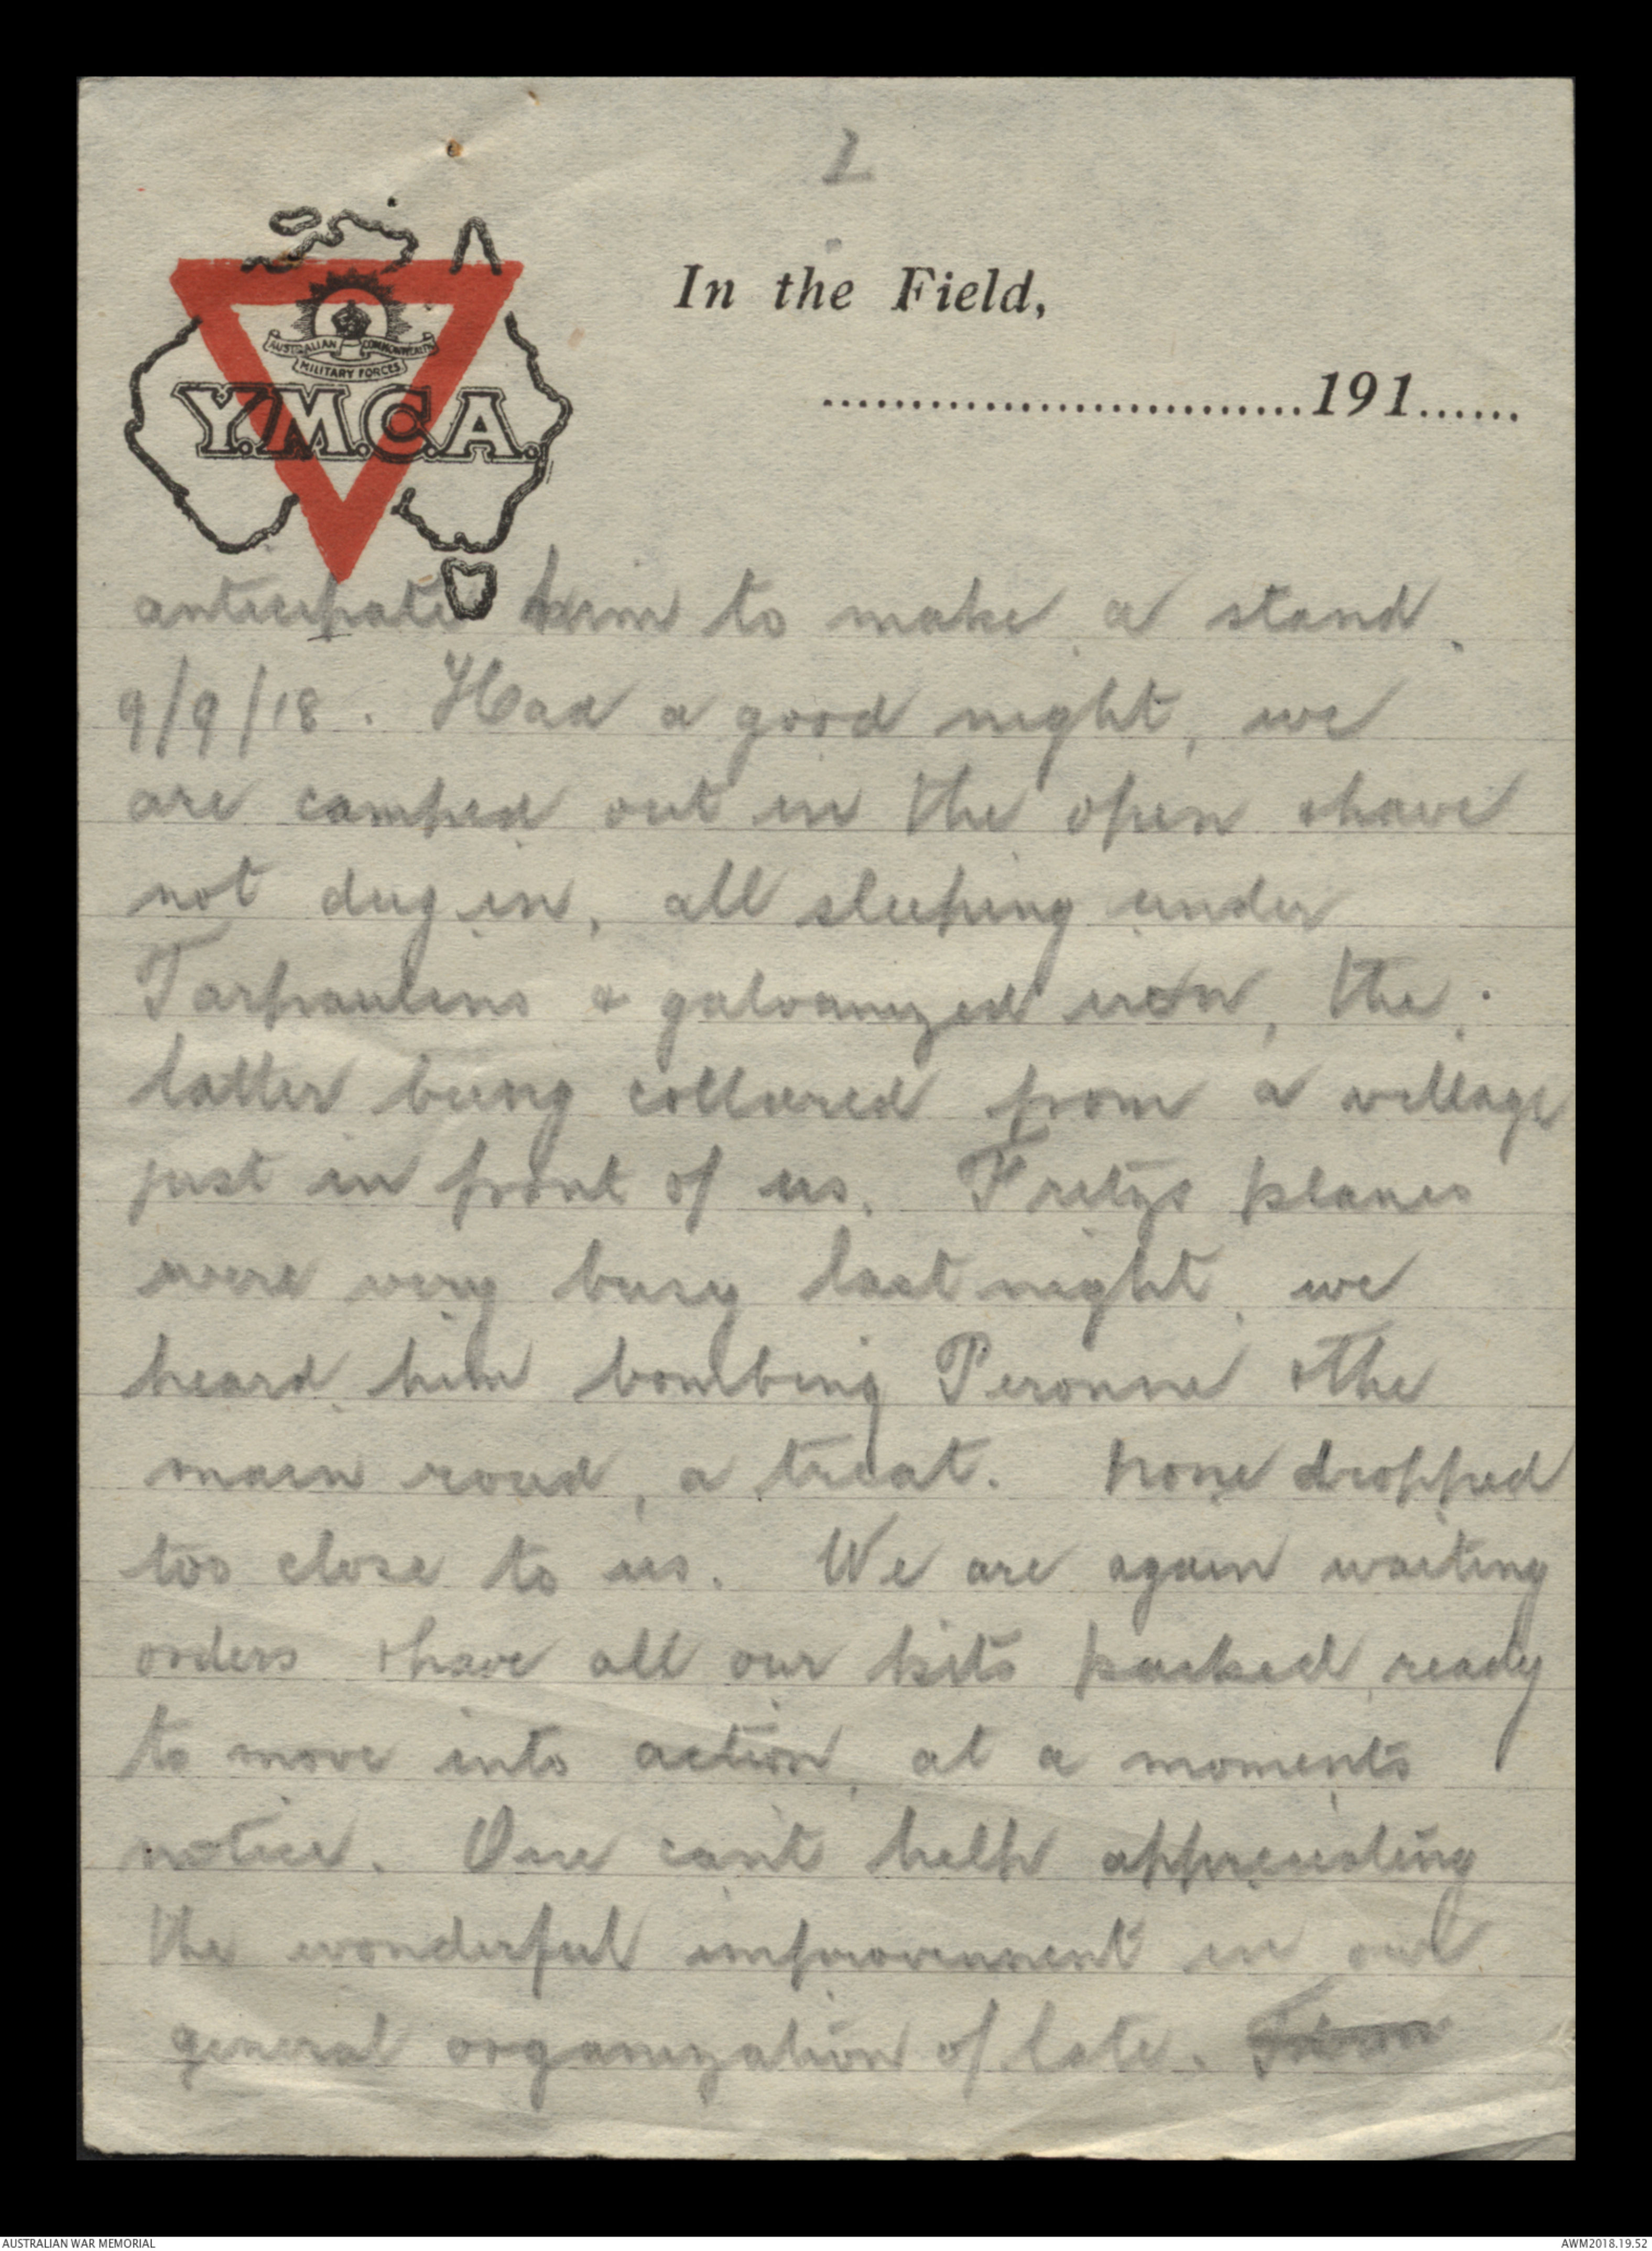 2
In the Field,
AUSTRALIAN COMMONWEALTH
MILITARY FORCES
Y.M.C.A.
..............................191......
anticipate him to make a stand.
9/9/18. Had a good night, we
are camped out in the open & have
not dug in, all sleeping under
Tarpaulins & galvanized iron, the
latter being collared from a village
just in front of us. Fritzs planes
were very busy last night, we
heard him bombing Peronne & the
main road, a treat. None dropped
too close to us. We are again waiting
orders & have all our kits packed, ready
to move into action, at a moments
notice. One cant help appreciating
the wonderful improvement in our
general organization of late.
AUSTRALIAN WAR MEMORIAL
AWM2018.19.52